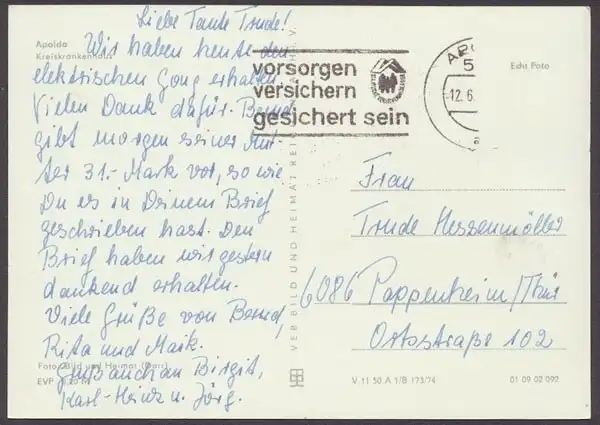 Liebe Tante Trude!
Apolda
Kreiskrankenhaus
Wir haben heute den
elektrischen Gong erhalten.
Vielen Dank dafür. Bernd
gibt morgen seiner Mut-
ter 31.- Mark vor, so wie
Du es in Deinem Brief
geschrieben hast. Den
Brief haben wir gestern
dankend erhalten.
Viele Grüße von Bernd,
Rita und Maik.
Gruß auch an Birgit,
Karl-Heinz u. Jörg.
Foto: Bild und Heimat (Darr)
EVP
VEB BILD UND HEIMAT REICHENBACH I. V.
vorsorgen
versichern
gesichert sein
12.6.
Echt Foto
Frau
Trude Hessenmöller
6086 Pappenheim/Thür
Ortsstraße 102
V 11 50 A 1/B 173/74
01 09 02 092